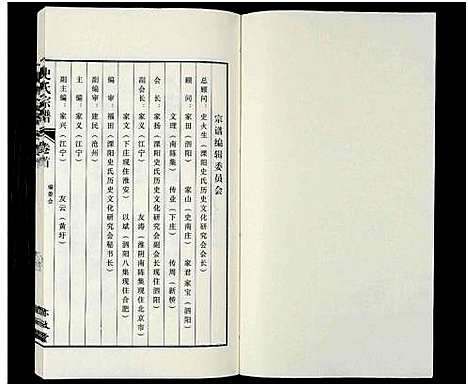 宗谱编辑委员会
总顾问：史火生（溧阳史氏历史文化研究会会长）
顾问：家田（泗阳） 家山（史南庄） 家君 家宝（泗阳）
文理（南陈集） 传业（下庄） 传周（新桥）
会长：家扬（溧阳史氏历史文化研究会副会长现住南京）
副会长：家义（江宁） 友涛（淮阴南陈集现住北京市）
家文（下庄现住淮安） 以斌（泗阳八集现住合肥）
编审：福田（溧阳史氏历史文化研究会秘书长）
副编审：建民（沧州）
主编：家义（江宁）
副主编：家兴（江宁） 友云（黄圩）
史氏宗谱
卷首
编委会